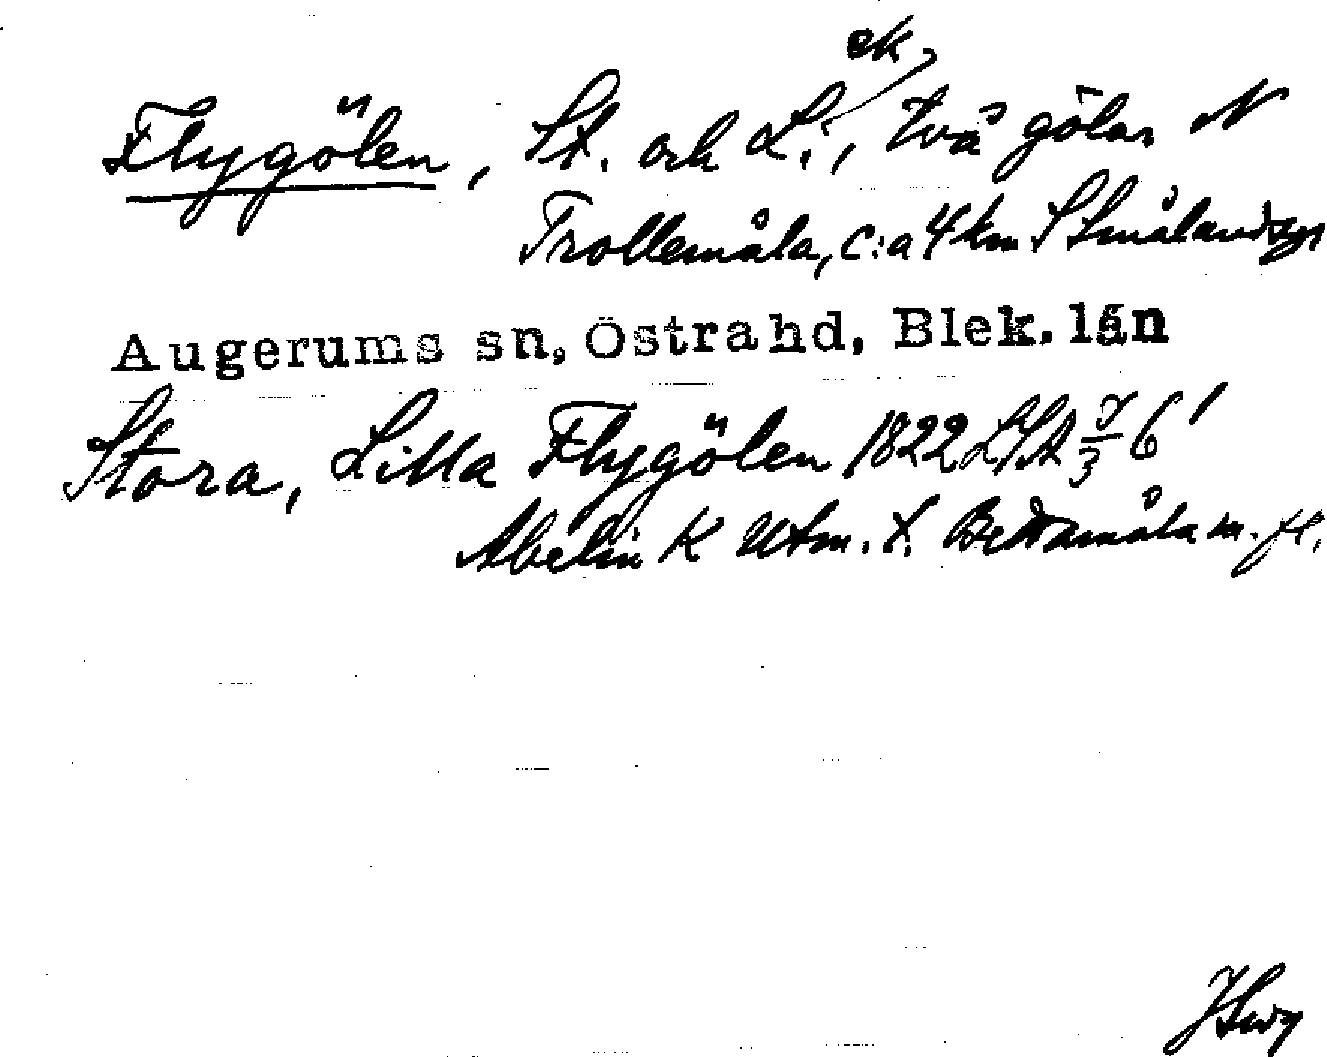 ek,
Flygölen, St. och L:, två gölar N
Trollemåla, c:a 4 km S Smålandsgr
Augerums sn, Östrahd, Blek. län
Stora, Lilla Flygölen 1822 LSA 6'
Abelin K Utm. t. Bettamåla m. fl.